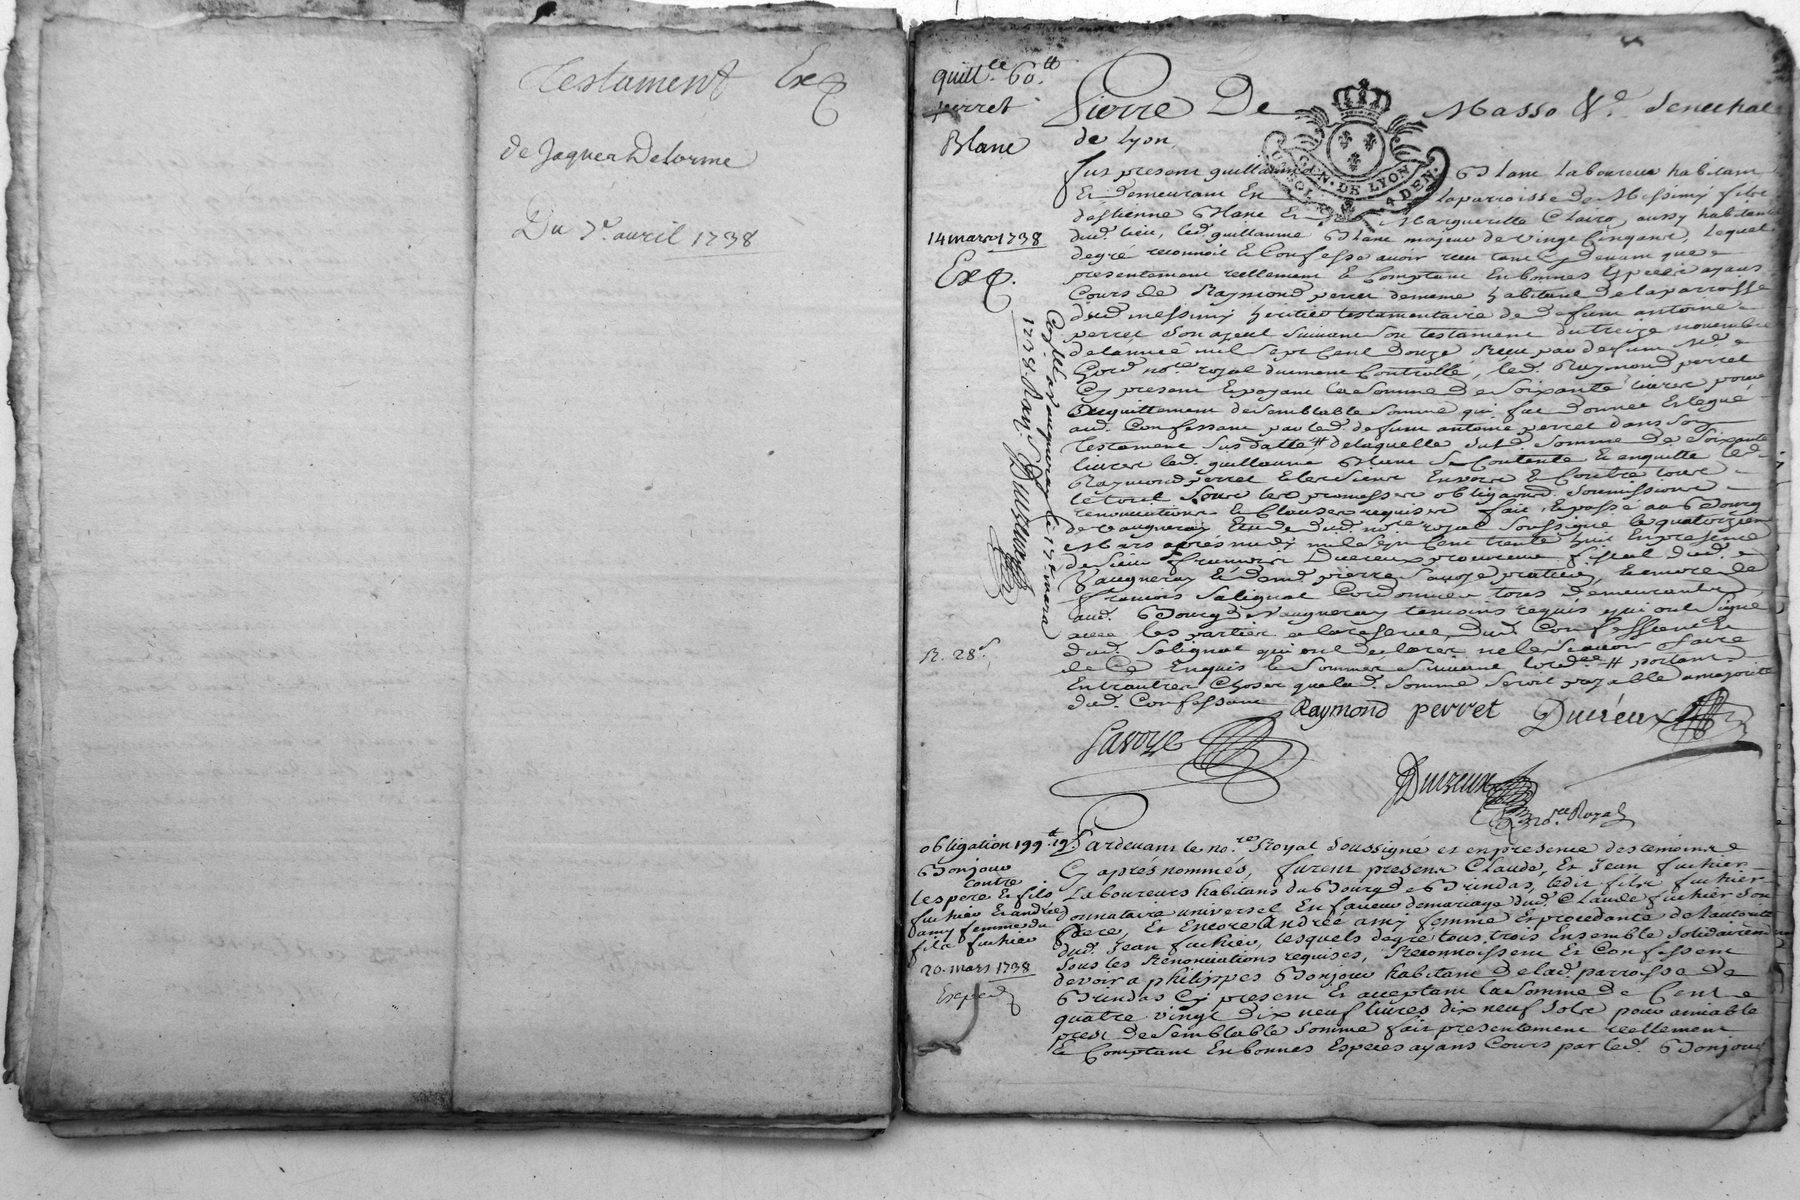 Testament Ex
de Jaques Delorme
Du 7e avril 1738
quill.ce 60.tt
perret
Blanc
14 mars 1738
Exp.
Pierre De Masso &.a Senechal
de Lyon,
GEN. DE LYON
UN SOL 4 DEN.
fut present guillaume Blanc Laboureur habitant
Et demeurant En laparroisse de Messimy fils
d'Estienne Blanc Et Marguerite Clairo, aussy habitants
dud. lieu, led. guillaume Blanc majeur de vingt Cinq ans, lequel
degré reconnoit & Confesse avoir reçu tant Cy devant que
presentement reellement & Comptant En bonnes Especes ayans
Cours de Raymond perret dememe habitant de la parroisse
dud. messimy heritier testamentaire de defunt antoine
perret son ayeul suivant son testament du treize novembre
de l'année mil sept Cent douze Reçu par defunt Me
not.re royal duement Controllé, led. Raymond perret
Cy present & payant la somme de soixante livres pour
acquittement de semblable somme qui fut donnée & leguée
aud. Confessant par led. defunt antoine perret dans son
testament sus datte # delaquelle susd. somme de soixante
livres led. guillaume Blanc se Contente & enquitte led.
Raymond perret & les siens Envers & Contre tous
sous les promesses obligaons. soumissions
renonciations & Clauses requises fait & passé au Bourg
de vaugneray Etude dud. no.re royal soussigné le quatorzieme
Mars aprés midy mil sept Cent trente huit En presence
de sieur françois Ducreux procureur fiscal dud.
Vaugneray & de me pierre Savoye praticien, & encore de
françois Salignat Cordonnier tous demeurants
aud. Bourg de Vaugneray temoins requis qui ont signé
avec les parties a la reserve dud. Confessant &
dud. Salignat qui ont declarer ne le sçavoir faire
de Ce Enquis & sommés suivant l'ord.ce # portant
Entrautres Choses que lad. somme seroit payable a majorité
dud. Confessant
Raymond perret Ducreux
Savoye
Ducreux
no.re Royal
Con.llé a vaugneray le 17e mars
1738. Ducreux
R. 28 s.
obligation 199.tt 19 s
Bonjour
contre
les pere & fils
fuchier & andrée
amy femme du
fils fuchier
20 mars 1738
Expd
Pardevant le no.re Royal soussigné et en presence des temoins
Cy aprés nommés, furent presens Claude, Et Jean fuchier
Laboureurs habitans du Bourg de Brindas, ledit fils fuchier
donnataire universel En faveur de mariage dud. Claude fuchier son
Pere, Et Encore Andrée amy femme & procedante de l'autorité
dud. Jean fuchier, lesquels degré tous trois Ensemble solidairement
sous les Renonciations requises, Reconnoissent Et Confessent
devoir a philippes Bonjour habitant de lad. parroisse de
Brindas Cy present Et acceptant la somme de Cent
quatre vingt dix neuf livres dix neuf sols pour amiable
prest de semblable somme fait presentement reellement
& Comptant En bonnes Especes ayans Cours par led. Bonjour